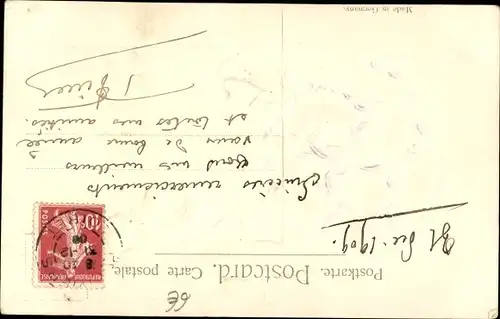 Made in Germany.
Postkarte. Postcard. Carte postale.
31 Dec. 1909.
Sincères remerciements
tous mes meilleurs
vœux de bonne année
et toutes mes amitiés.
10
POSTES
REPUBLIQUE FRANÇAISE
6E